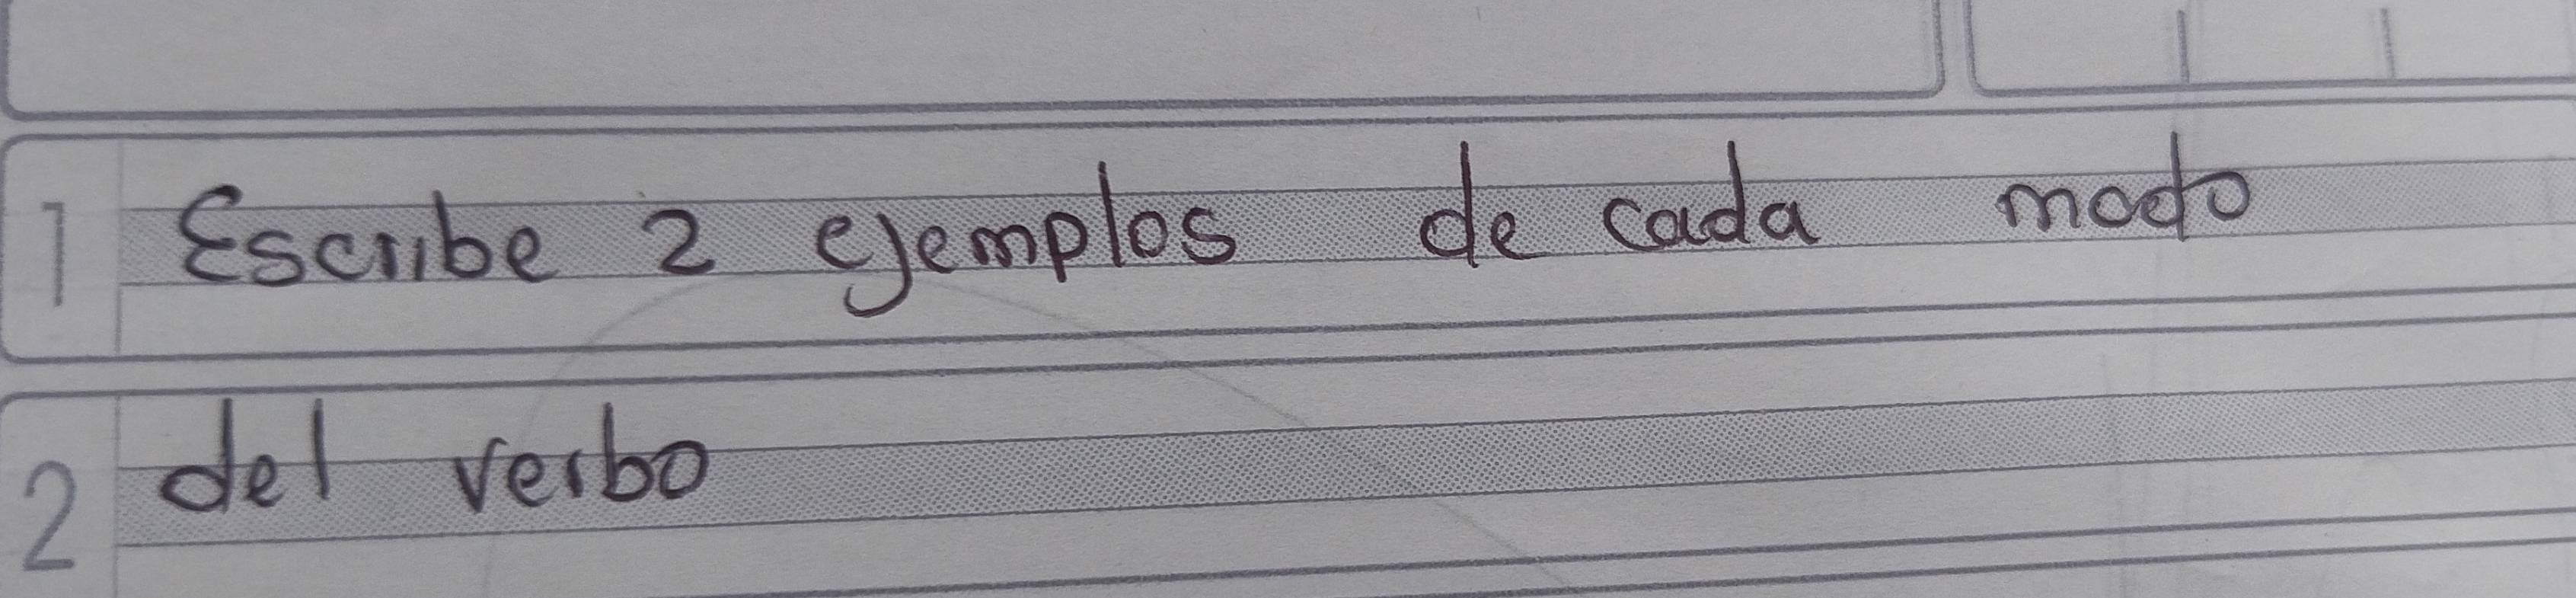 1 Escribe 2 ejemplos de cada modo
2 del verbo